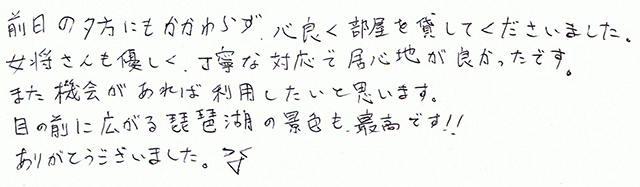 前日の夕方にもかかわらず、心良く部屋を貸してくださいました。
女将さんも優しく、丁寧な対応で居心地が良かったです。
また機会があれば利用したいと思います。
目の前に広がる琵琶湖の景色も、最高です!!
ありがとうございました。